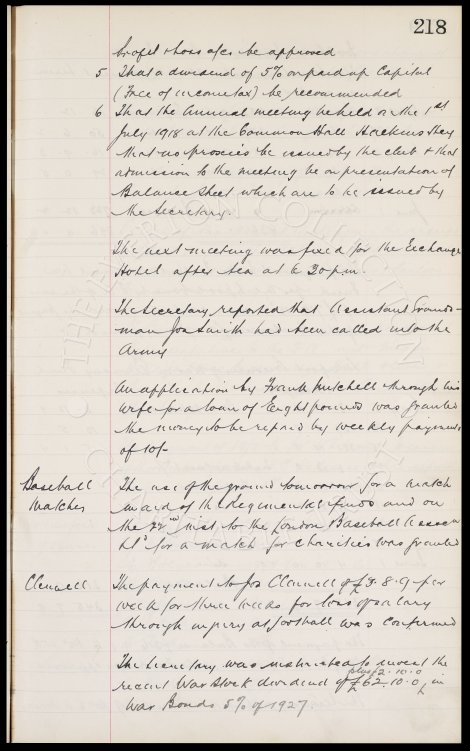 218
profit & loss a/cs be approved
5 That a dividend of 5% on paid up Capital
(Free of income tax) be recommended
6 That the Annual meeting be held on the 1st
July 1918 at the Common Hall Hackins Hey
that no proxies be issued by the club & that
admission to the meeting be on presentation of
Balance Sheet which are to be issued by
the Secretary.
The next meeting was fixed for the Exchange
Hotel after tea at 6 30 p.m.
The Secretary reported that Assistant Grounds-
man Jos Smith had been called into the
Army
An application by Frank Mitchell through his
wife for a loan of Eight pounds was granted
the money to be repaid by weekly payments
of 10/-
Baseball
Matches
The use of the ground tomorrow for a match
in aid of the Regimental funds and on
the 22nd inst to the London Baseball Assocn
Ltd for a match for charities was granted
Clennell
The payment to Jos Clennell of £3-8-9 per
week for three weeks for loss of salary
through injury at football was confirmed
The Secretary was instructed to invest the
plus £2.10.0
recent War Stock dividend of £62.10.0 in
War Bonds 5% of 1927.
THE EVERTON COLLECTION